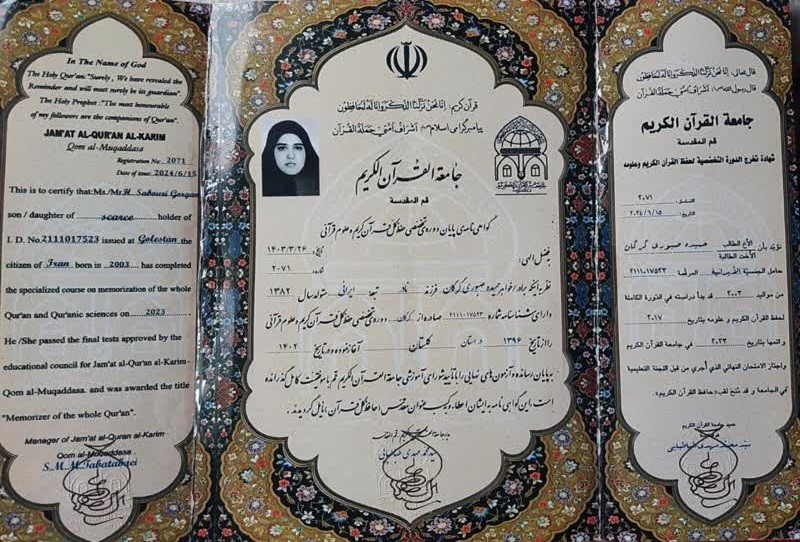 In The Name of God
The Holy Qur'an:"Surely, We have revealed the
Reminder and will most surely be its guardian".
The Holy Prophet :"The most honourable
of my followers are the companions of Qur'an".
JAM'AT AL-QUR'AN AL-KARIM
Qom al-Muqaddasa
Registration No. 2071
Date of issue: 2024/6/15
This is to certify that:Ms./Mr H. Sabouri Gorgan
son / daughter of scarce holder of
I. D. No. 2111017523 issued at Golestan the
citizen of Iran born in 2003 has completed
the specialized course on memorization of the whole
Qur'an and Qur'anic sciences on 2023
He /She passed the final tests approved by the
educational council for Jam'at al-Qur'an al-Karim-
Qom al-Muqaddasa. and was awarded the title
"Memorizer of the whole Qur'an".
Manager of Jam'at al-Quran al-Karim
Qom al-Muqaddasa
S.M.M.Tabatabaei
قرآن کریم: إنا نحن نزلنا الذکر و إنا له لحافظون
پیامبر گرامی اسلام: أشراف أمتی حملة القرآن
جامعة القرآن الکریم
قم المقدسة
گواهی نامه‌ی پایان دوره‌ی تخصصی حفظ کل قرآن کریم و علوم قرآنی
بفضل الهی: تاریخ: ۱۴۰۳/۳/۲۶
شماره: ۲۰۷۱
نظر به اینکه برادر/خواهر حمیده صبوری گرگان فرزند نادر تبعه ایرانی متولد سال ۱۳۸۲
دارای شناسنامه شماره ۲۱۱۱۰۱۷۵۲۳ صادره از گرگان دوره‌ی تخصصی حفظ کل قرآن کریم و علوم قرآنی
را از تاریخ ۱۳۹۶ در استان گلستان آغاز نموده و در تاریخ ۱۴۰۲
به پایان رسانده و آزمون‌های نهایی را با تأیید شورای آموزشی جامعة القرآن الکریم قم با موفقیت کامل گذرانده
است، این گواهی نامه به ایشان اعطاء و به کسب عنوان مقدس (حافظ کل قرآن) نایل گردیدند.
مدیر جامعة القرآن الکریم قم المقدسه
سید محمد مهدی طباطبائی
قال تعالی: إنا نحن نزلنا الذکر و إنا له لحافظون
قال رسول الله: أشراف أمتی حملة القرآن
جامعة القرآن الكريم
قم المقدسة
شهادة تخرج الدورة التخصصية لحفظ القرآن الكريم وعلومه
۲۰۷۱
التاريخ: ۲۰۲۴/۶/۱۵
نؤيد بأن الأخ الطالب حميده صبوری گرگان
الأخت الطالبة
حامل الجنسية الإيرانية المرقمة ۲۱۱۱۰۱۷۵۲۳
من مواليد ۲۰۰۳ قد بدأ دراسته في الدورة الكاملة
لحفظ القرآن الكريم و علومه بتاريخ ۲۰۱۷
وانتها بتاريخ ۲۰۲۳ في جامعة القرآن الكريم
واجتاز الامتحان النهائي الذي أُجري من قبل اللجنة التعليمية
في الجامعة و قد مُنح لقب «حافظ القرآن الكريم».
مدير جامعة القرآن الكريم
قم المقدسة
سيد محمد مهدی طباطبایی